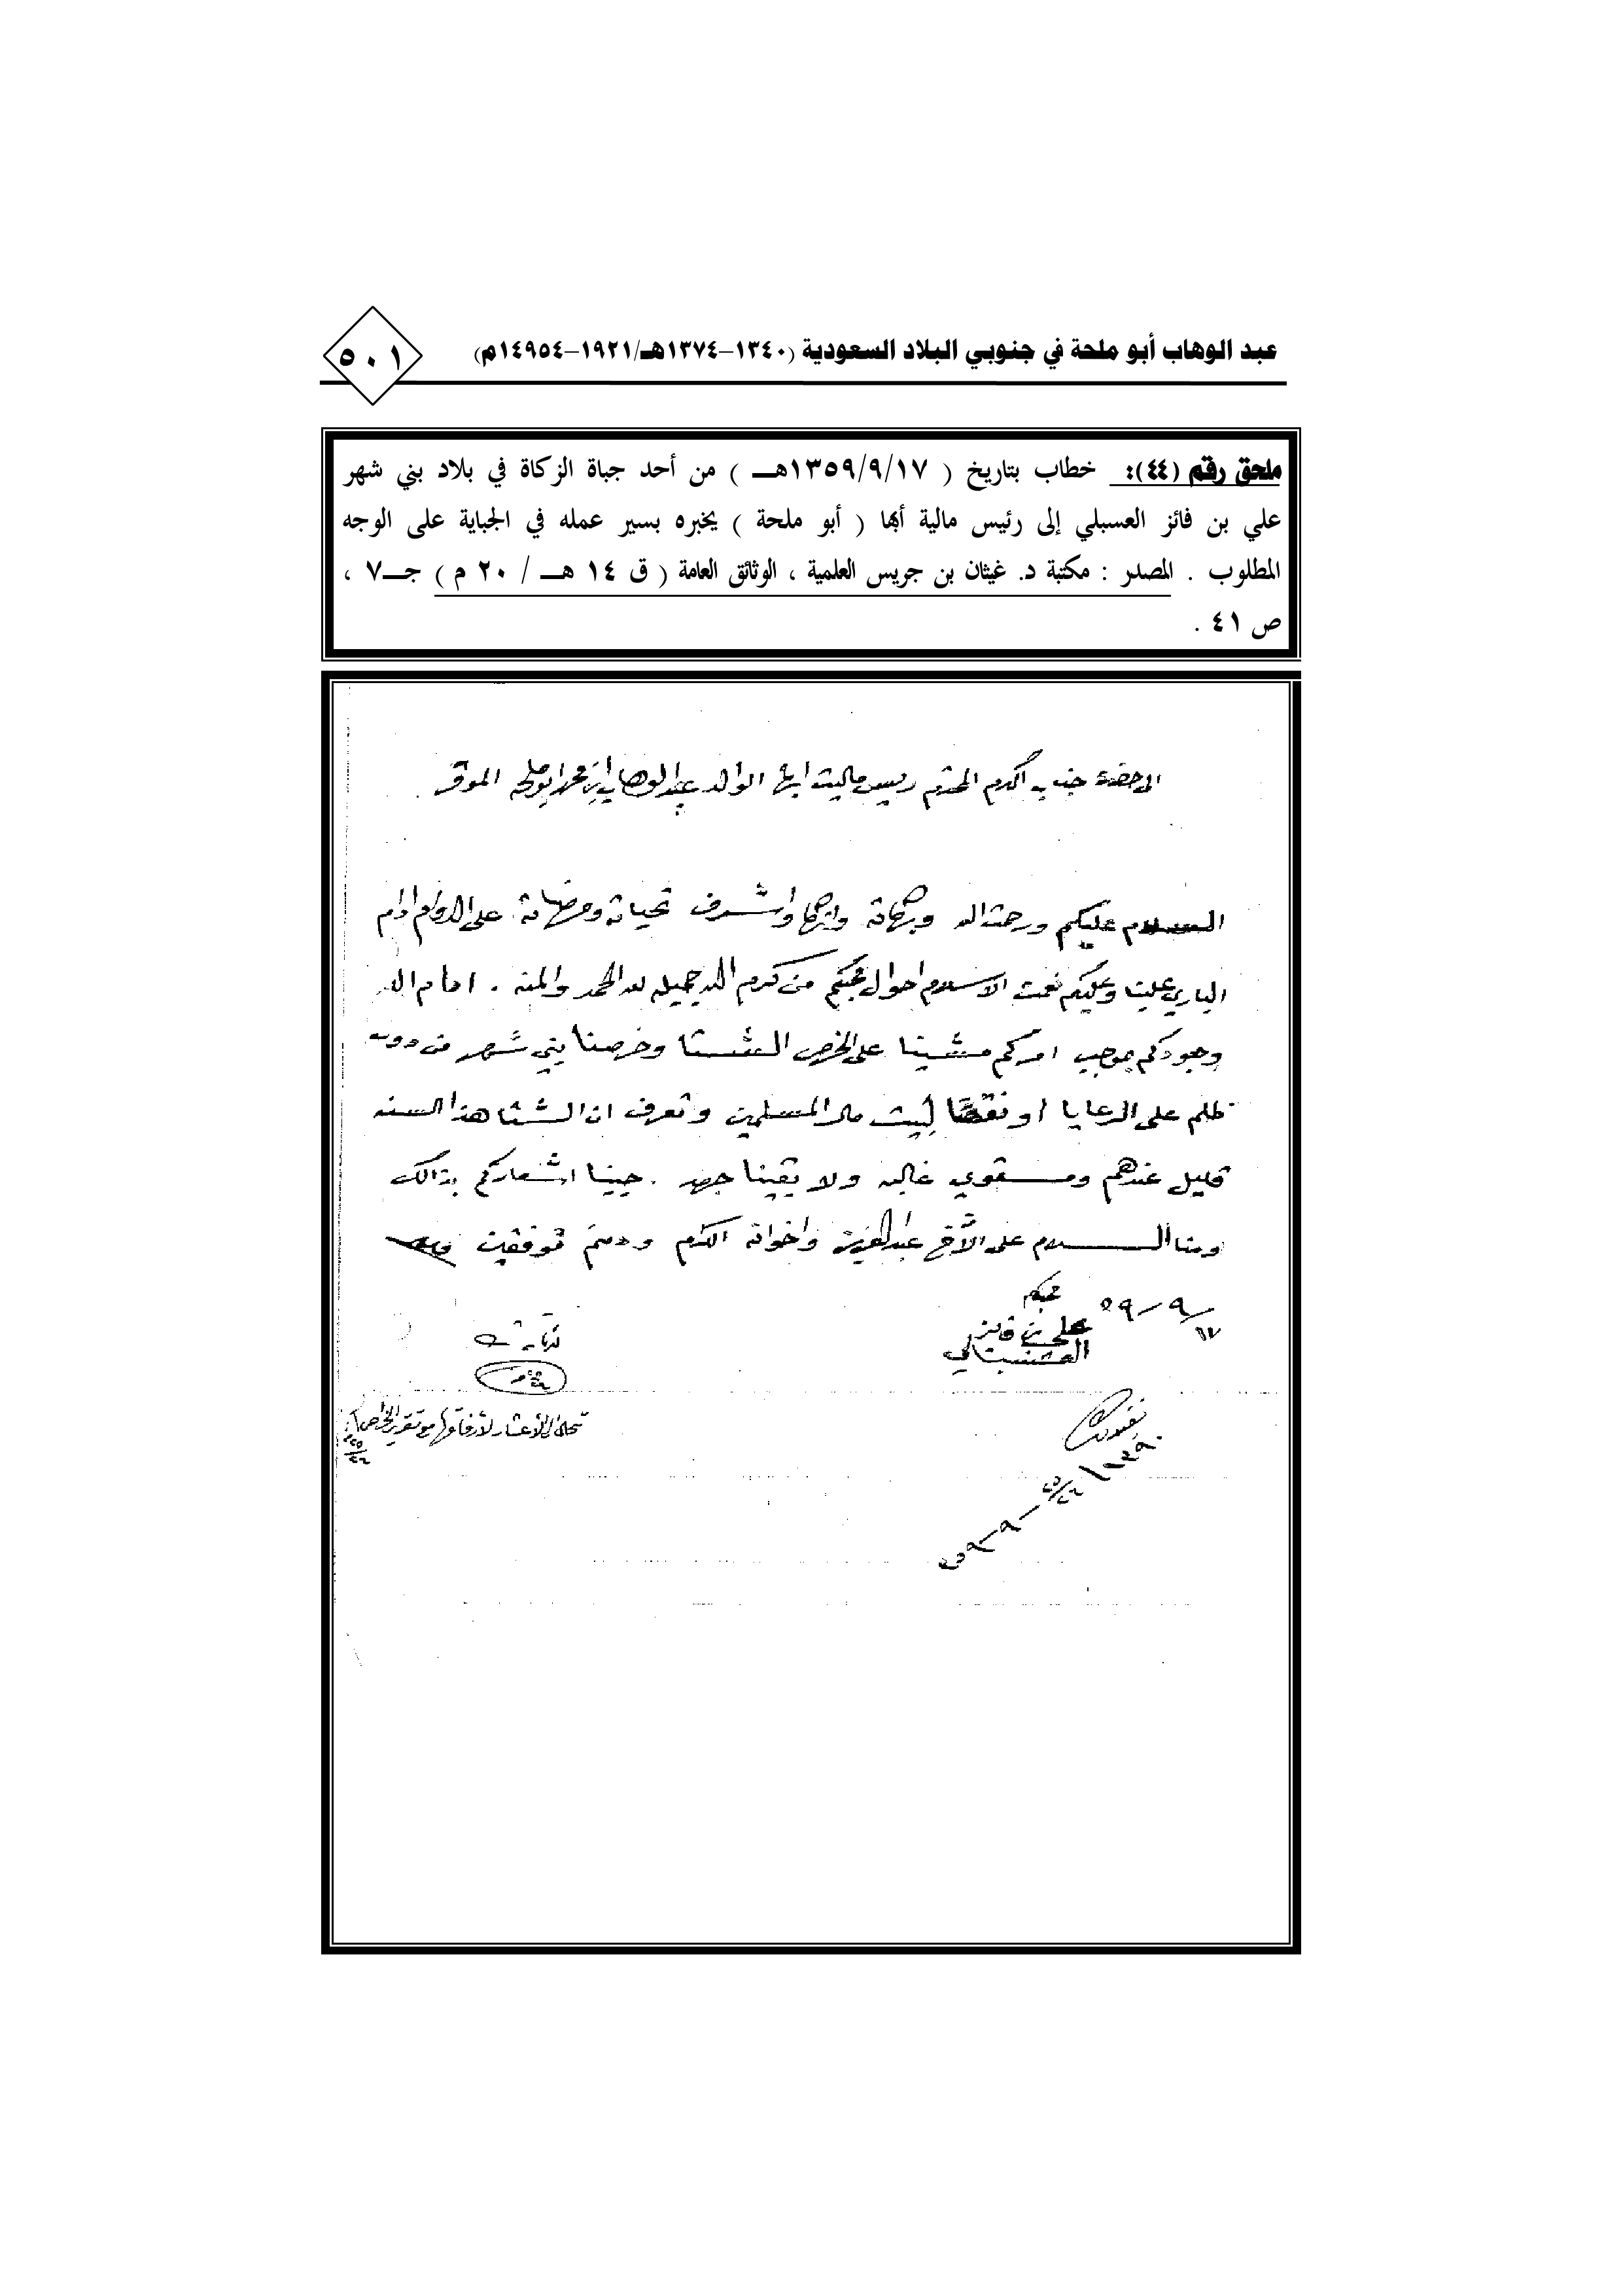 عبد الوهاب أبو ملحة في جنوبي البلاد السعودية (١٣٤٠-١٣٧٤هـ/١٩٢١-١٤٩٥٤م)
٥٠١
ملحق رقم (٤٤): خطاب بتاريخ ( ١٣٥٩/٩/١٧هـ ) من أحد جباة الزكاة في بلاد بني شهر
علي بن فائز العسبلي إلى رئيس مالية أبها ( أبو ملحة ) يخبره بسير عمله في الجباية على الوجه
المطلوب . المصدر : مكتبة د. غيثان بن جريس العلمية ، الوثائق العامة ( ق ١٤ هـ / ٢٠ م ) جـ٧ ،
ص ٤١ .
الى حضرة جناب اكرم المحترم ريس ماليت ابها الوالد عبد الوهاب ابن محمد ابو ملحه الموقر
السلام عليكم ورحمت الله وبركاته وازكا واشرف تحياته ومرضاته على الدوام ادام
الباري علينا وعليكم نعمت الاسلام احوال محبكم من كرم الله جميله لله الحمد والمنه . ادام الله
وجودكم بموجب امركم مشينا على الخرص الشتا وخرصنا بني شهر من دون
ظلم على الرعايا او نقصا لبيت مال المسلمين وتعرف ان الشتا هذا السنه
قليل عندهم ومستوي غاليه ولا بقينا جهد . حبينا اشعاركم بذالك
ومنا السلام على الأخ عبد العزيز واخوانه الكرام ودمتم توفقين
محبكم
١٧-٩-٥٩
علي بن فايز
العسبلي